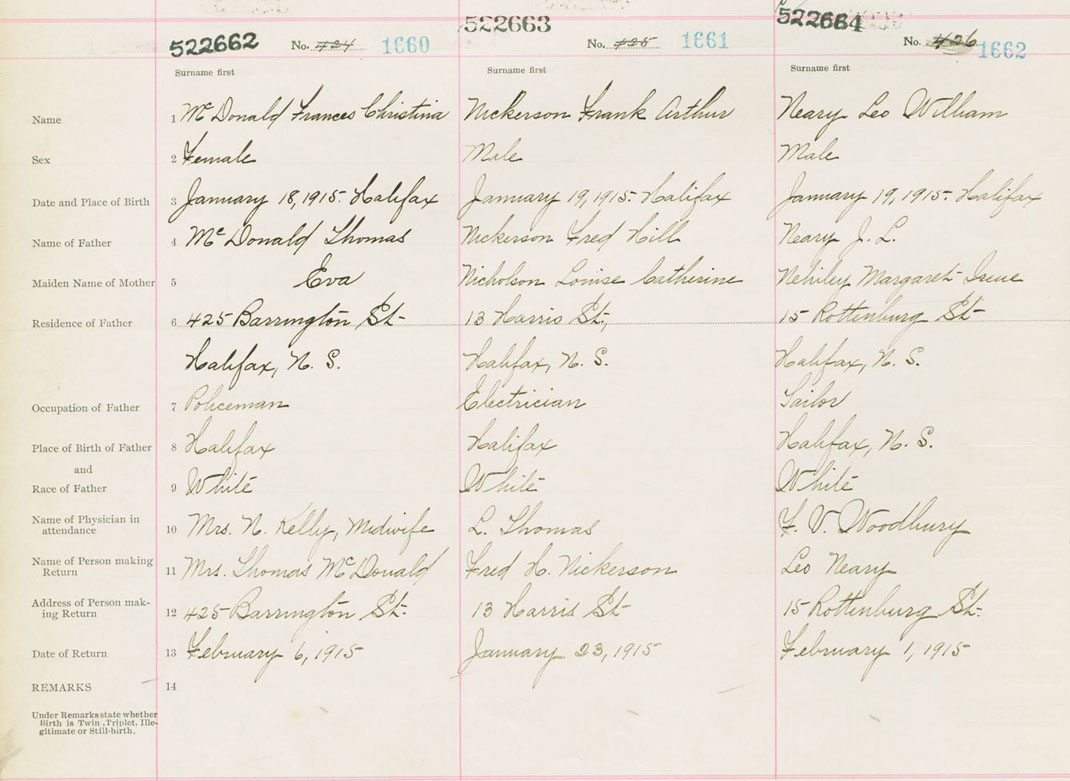 522662 No. 424 1660 522663 No. 425 1661 522664 No. 426 1662
Surname first Surname first Surname first
Name 1 McDonald Frances Christina Nickerson Frank Arthur Neary Leo William
Sex 2 Female Male Male
Date and Place of Birth 3 January 18, 1915. Halifax January 19, 1915. Halifax January 19, 1915. Halifax
Name of Father 4 McDonald Thomas Nickerson Fred Hill Neary J. L.
Maiden Name of Mother 5 Eva Nicholson Louise Catherine Margaret Irene
Residence of Father 6 425 Barrington St. 13 Harris St., 15 Rottenburg St.
Halifax, N. S. Halifax, N. S. Halifax, N. S.
Occupation of Father 7 Policeman Electrician
Place of Birth of Father 8 Halifax Halifax Halifax, N. S.
and
Race of Father 9 White White White
Name of Physician in
attendance 10 Mrs. N. Kelly, Midwife L. Thomas F. V. Woodbury
Name of Person making
Return 11 Mrs. Thomas McDonald Fred H. Nickerson Leo Neary
Address of Person mak-
ing Return 12 425 Barrington St. 13 Harris St 15 Rottenburg St.
Date of Return 13 February 6, 1915 January 23, 1915 February 1, 1915
REMARKS 14
Under Remarks state whether
Birth is Twin, Triplet, Ille-
gitimate or Still-birth.